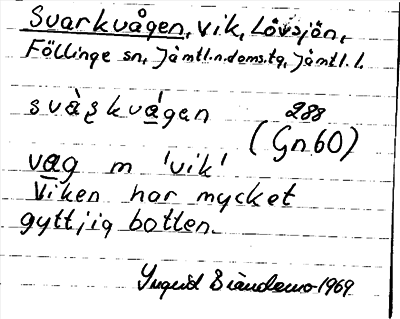 Svarkvågen, vik, Lövsjön,
Föllinge sn, Jämtl.n.doms.tg, Jämtl. l.
svàȿkvá̱gen 288
(Gn 60)
va̱g m 'vik'
Viken har mycket
gyttjig botten.
Ingrid 1969